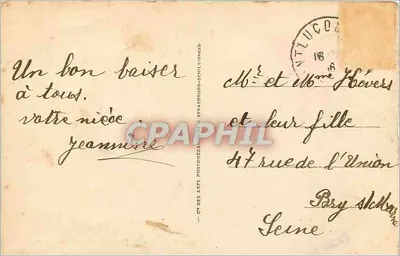 Un bon baiser
à tous.
votre nièce
Jeannine
NTLUÇO
16
Mr et Mme Hévers
et leur fille
47 rue de l'Union
Bry s/Marne
Seine
CPAPHIL
Cie DES ARTS PHOTOMÉCA STRASBOURG-SCHILTIGHEIM